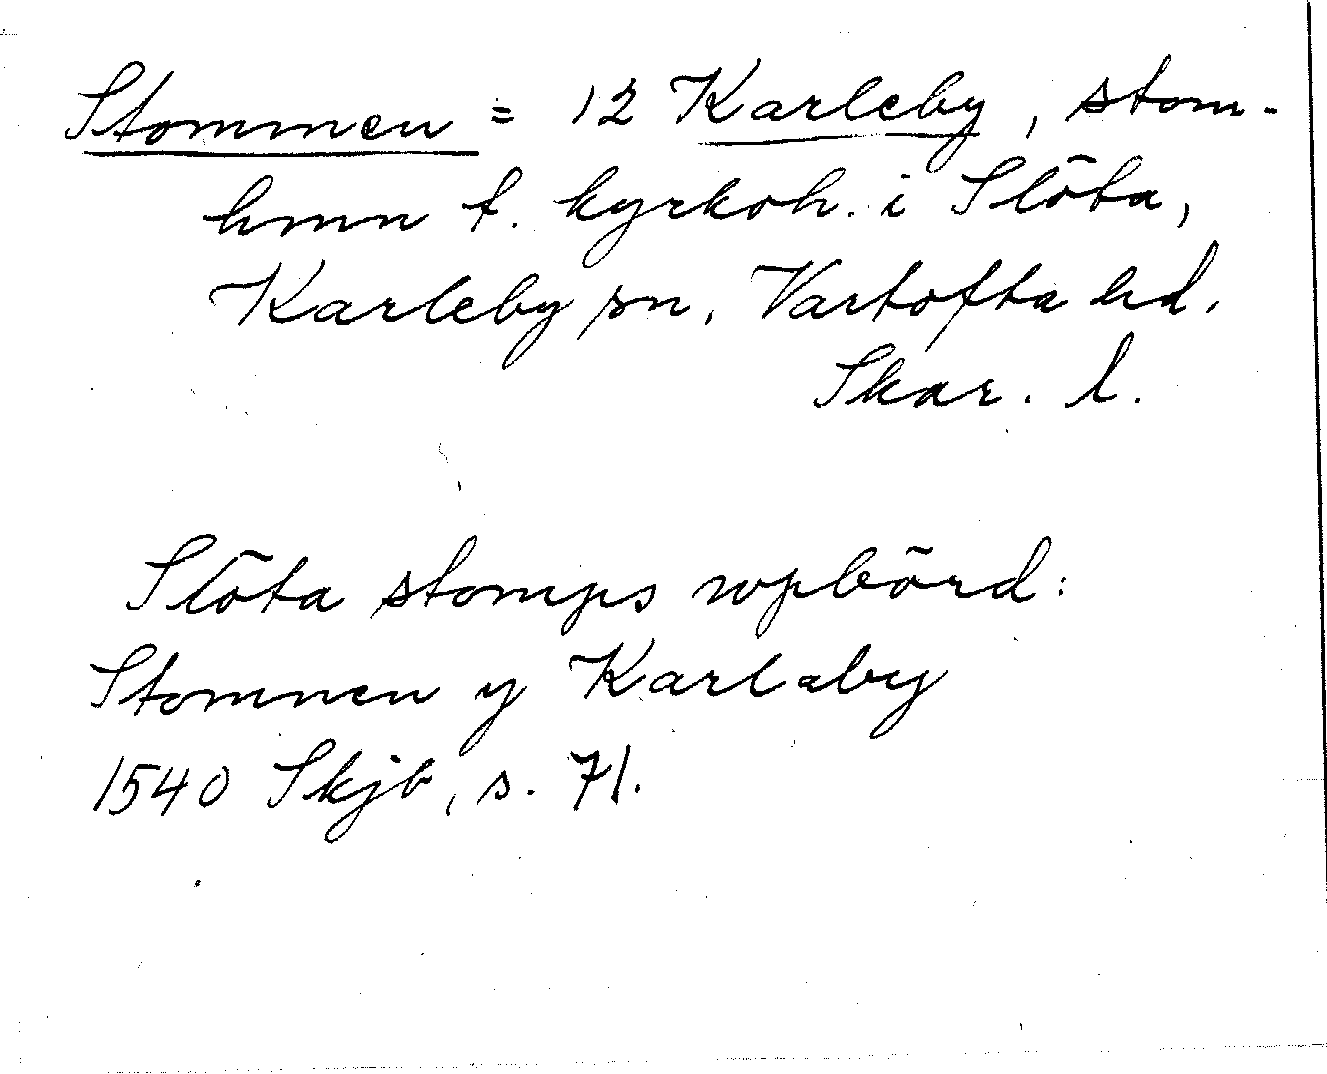 Stommen = 12 Karleby, stom-
hmn f. kyrkoh. i Slöta,
Karleby sn, Vartofta hd,
Skar. l.
Slöta stomps wpbörd:
Stomnen y Karlaby
1540 Skjb, s. 71.